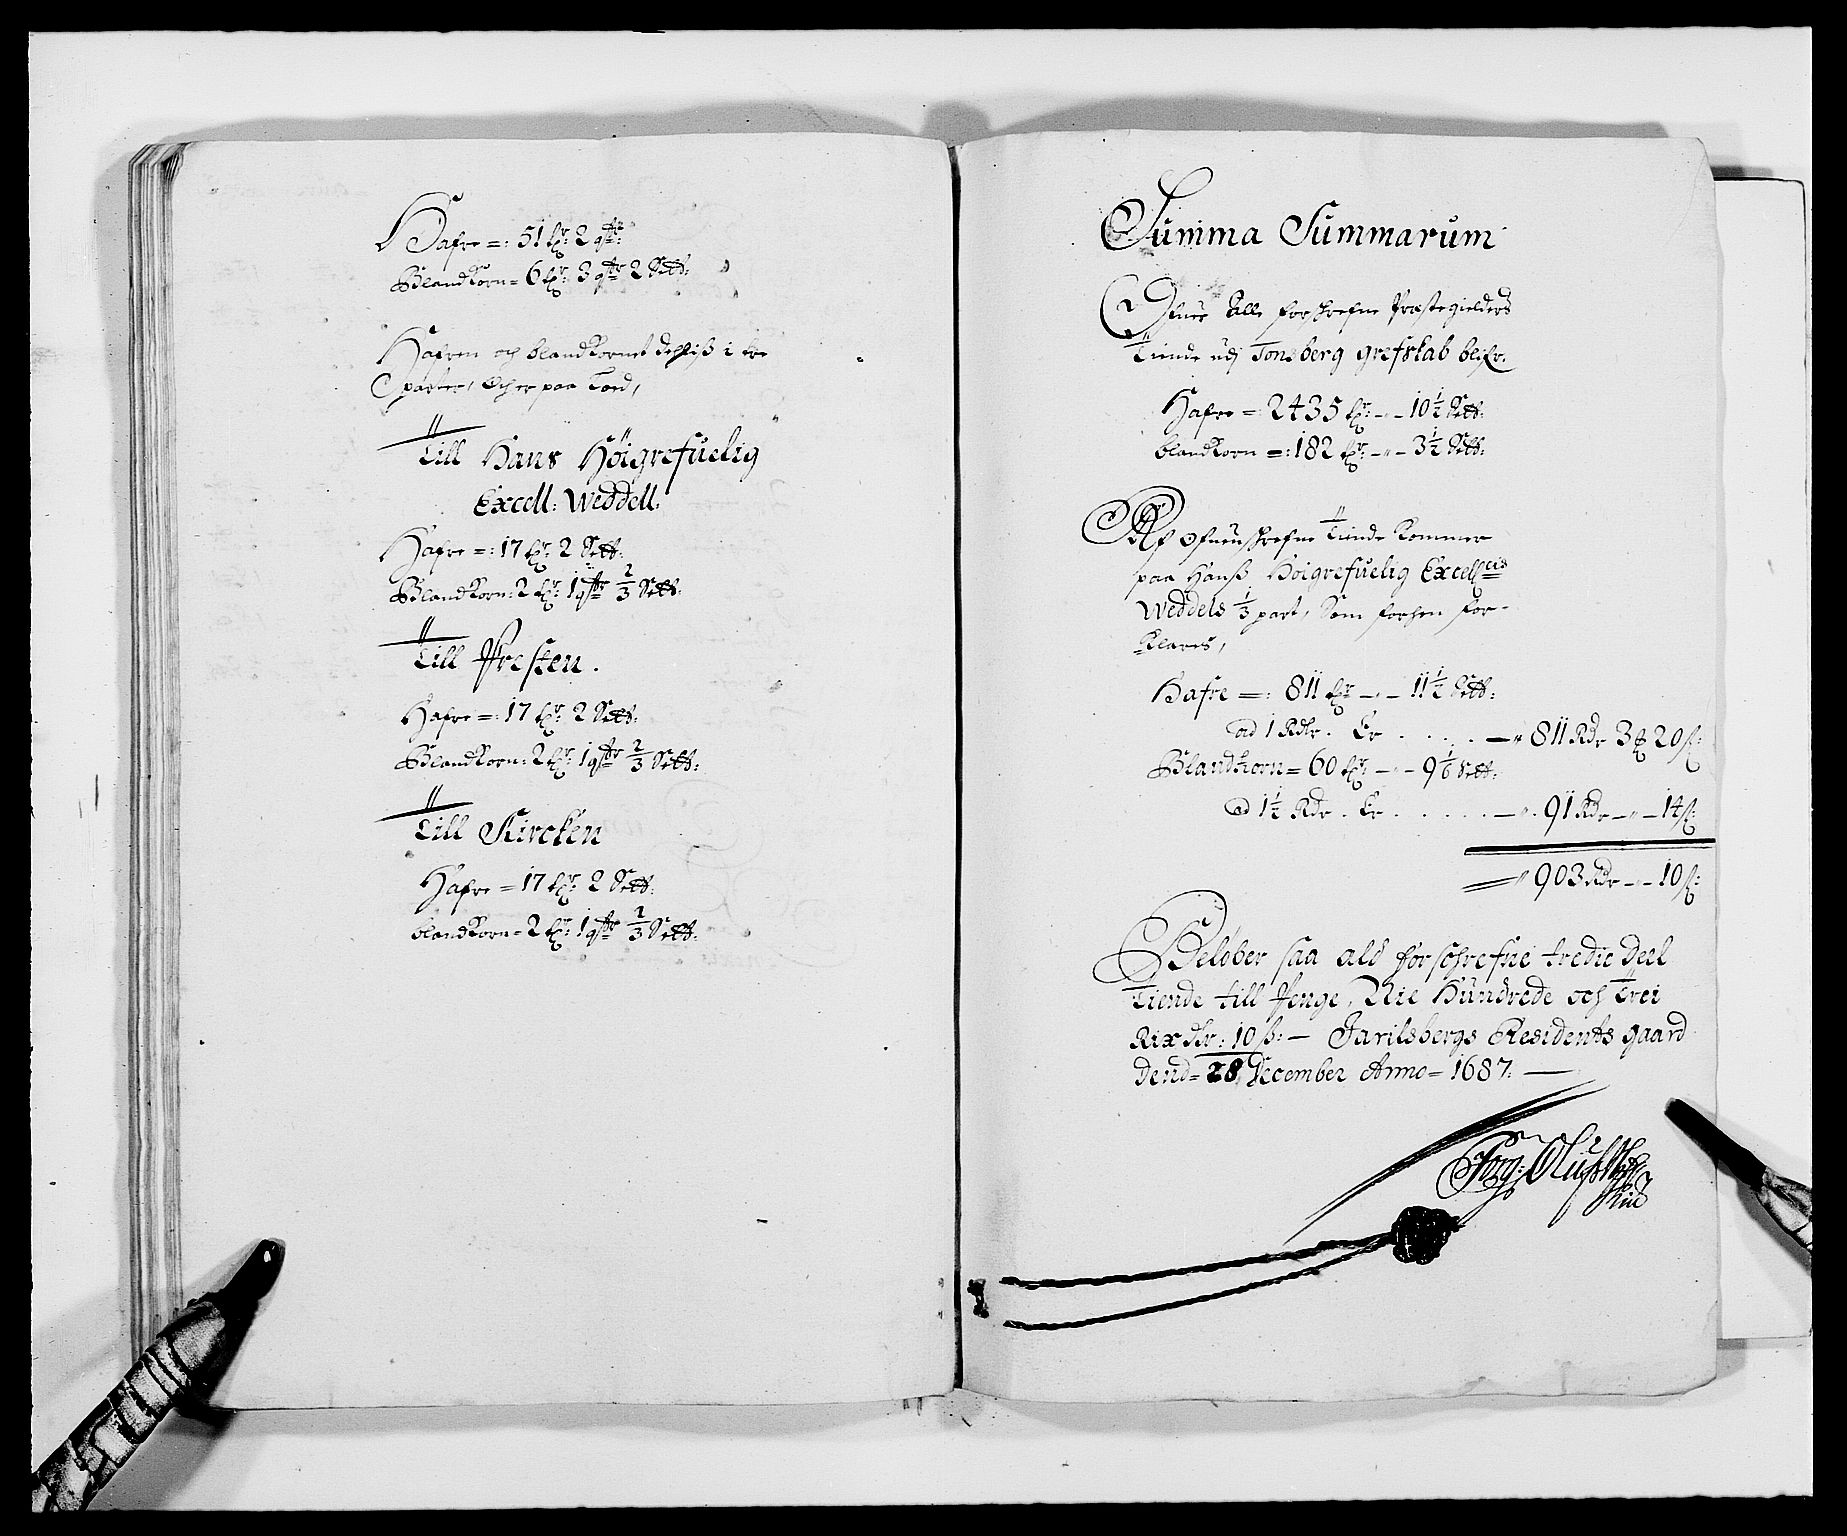 Hafre =: 51 tr: 2 qtr:
Blandkorn = 6 tr: 3 qtr 2 Sett:
Hafren och blandkornet dehlis i tre
parter, Och er paa
Till Hans Höigrefuelig
Excell: Weddell.
Hafre =: 17 tr: 2 Sett:
Blandkorn: 2 tr: 1 qtr 2/3 Sett:
Till Presten.
Hafre =: 17 tr: 2 Sett:
Blandkorn: 2 tr: 1 qtr 2/3 Sett:
Till Kircken
Hafre = 17 tr: 2 Sett:
blandkorn = 2 tr: 1 qtr 2/3 Sett:
Summa Summarum
Ofuer Alle forschrefne Præstegielders
Tiende udj Tonsberg grefskab blifr.
Hafre =: 2435 tr: - " - 10 1/2 Sett:
blandkorn =: 182 tr: - " - 3 1/2 Sett:
Af ofuenschrefne Tiende kommer
paa Hanß Höigrefuelig Excellcis
Weddels 1/3 part, Som forhen for-
klares,
Hafre =: 811 tr - " - 11 1/2 Sett:
ad 1 Rdlr. Er . . . . . — " 811 Rdr 3 ℔ 20 ß:
Blandkorn = 60 tr: - " - 9 1/6 Sett:
ad 1 1/2 Rdr. Er . . . . . . — " . 91 Rdr - " - 14 ß:
" 903 Rdr - " - 10 ß:
Beløber saa ald forschrefne tredie Deel
Tiende till Penge, Nie Hundrede och Trei
Rixdlr: 10 ß: — Jarilsbergs Residents gaard
Dend = 28 December Anno = 1687. —
Jørg: Olufs